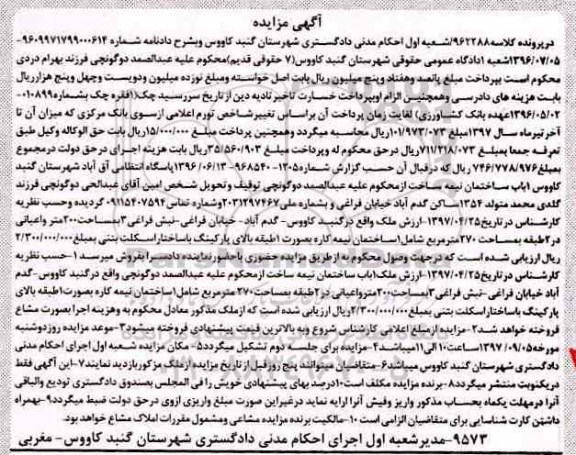 آگهی مزایده
درپرونده کلاسه ۹۶۲۲۸۸/شعبه اول احکام مدنی دادگستری شهرستان گنبد کاووس وبشرح دادنامه شماره ۹۶۰۹۹۷۱۷۹۹۰۰۰۶۱۴-
۱۳۹۶/۰۷/۰۵شعبه ۱دادگاه عمومی حقوقی شهرستان گنبد کاووس(۷ حقوقی قدیم)محکوم علیه عبدالصمد دوگونچی فرزند بهرام دردی
محکوم است بپرداخت مبلغ پانصد وهفتاد وپنج میلیون ریال بابت اصل خواسته ومبلغ نوزده میلیون ودویست وچهل وپنج هزارریال
بابت هزینه های دادرسی وهمچنین الزام اوبپرداخت خسارت تاخیر تادیه دین از تاریخ سررسید چک(۱فقره چک بشماره۰۱۰۸۹۹-
۱۳۹۶/۰۵/۰۲عهده بانک کشاورزی) لغایت زمان پرداخت آن براساس تغییر شاخص تورم اعلامی ازسوی بانک مرکزی که میزان آن تا
آخر تیرماه سال ۱۳۹۷مبلغ ۱۰۱/۹۷۳/۰۷۳ریال محاسبه میگردد وهمچنین پرداخت مبلغ ۱۵/۰۰۰/۰۰۰ریال بابت حق الوکاله وکیل طبق
تعرفه جمعا بمبلغ ۷۱۱/۲۱۸/۰۷۳ریال درحق محکوم له وپرداخت مبلغ ۳۵/۵۶۰/۹۰۳ریال بابت هزینه اجرای درحق دولت درمجموع
بمبلغ ۷۴۶/۷۷۸/۹۷۶ریال که درقبال آن حسب گزارش شماره۱۲۰۵-۹۶۸۵۴۰-۱۳۹۶/۰۶/۱۳پاسگاه انتظامی آق آباد شهرستان گنبد
کاووس ۱باب ساختمان نیمه ساخت ازمحکوم علیه عبدالصمد دوگونچی توقیف وتحویل شخص امین آقای عبدالحی دوگونچی فرزند
گلدی محمد متولد ۱۳۵۴ساکن گدم آباد خیابان فراغی و بشماره ملی۲۰۳۱۲۹۷۴۶۷وشماره تماس ۰۹۱۱۵۴۰۷۵۹۴ گردیده وحسب نظریه
کارشناس در تاریخ۱۳۹۷/۰۴/۲۵-ارزش ملک واقع در گنبد کاووس- گدم آباد- خیابان فراغی-نبش فراغی ۳بمساحت۲۰۰متر واعیانی
در ۲طبقه بمساحت ۲۷۰مترمربع شامل۱ساختمان نیمه کاره بصورت ۱طبقه بالای پارکینگ باساختاراسکلت بتنی بمبلغ۲/۳۰۰/۰۰۰/۰۰۰
ریال ارزیابی شده است که درجهت وصول محکوم به ازطریق مزایده حضوری باحضورنماینده دادسرا بفروش میرسد ۱-حسب نظریه
کارشناس در تاریخ۱۳۹۷/۰۴/۲۵-ارزش ملک۱باب ساختمان نیمه ساخت ازمحکوم علیه عبدالصمد دوگونچی واقع درگنبد کاووس-گدم
آباد خیابان فراغی -نبش فراغی ۳بمساحت۲۰۰مترواعیانی در۲طبقه بمساحت ۲۷۰مترمربع شامل۱ساختمان نیمه کاره بصورت۱طبقه بالای
پارکینگ باساختاراسکلت بتنی بمبلغ۲/۳۰۰/۰۰۰/۰۰۰ریال ارزیابی شده است که ازملک مذکور معادل محکوم به وهزینه اجرا بصورت مشاع
فروخته خواهد شد۲-مزایده ازمبلغ اعلامی کارشناس شروع وبه بالاترین قیمت پیشنهادی فروخته میشود۳-موعد مزایده روزدوشنبه
مورخه۱۳۹۷/۰۹/۰۵ساعت۱۰الی۱۱میباشد۴-مزایده برای جلسه دوم تشکیل میگردد۵-مکان مزایده شعبه اول اجرای احکام مدنی
دادگستری شهرستان گنبد کاووس میباشد۶-متقاضیان میتوانند پنج روزقبل از تاریخ مزایده ازملک مزکوربازدید نمایند۷-این آگهی فقط
دریکنوبت منتشر میگردد۸-برنده مزایده مکلف است۱۰درصد بهای پیشنهادی خویش را فی المجلس بصندوق دادگستری تودیع والباقی
آنرا درمهلت یکماه بحساب مذکور واریز وفیش آنرا ارایه نماید درغیراین صورت مبلغ واریزی ازوی درحق دولت ضبط میگردد۹-بهمراه
داشتن کارت شناسایی برای متقاضیان الزامی است ۱۰-مالکیت برنده مزایده مشاعی ومشمول مقررات املاک مشاع خواهد بود.
۹۵۷۳-مدیرشعبه اول اجرای احکام مدنی دادگستری شهرستان گنبد کاووس- مغربی